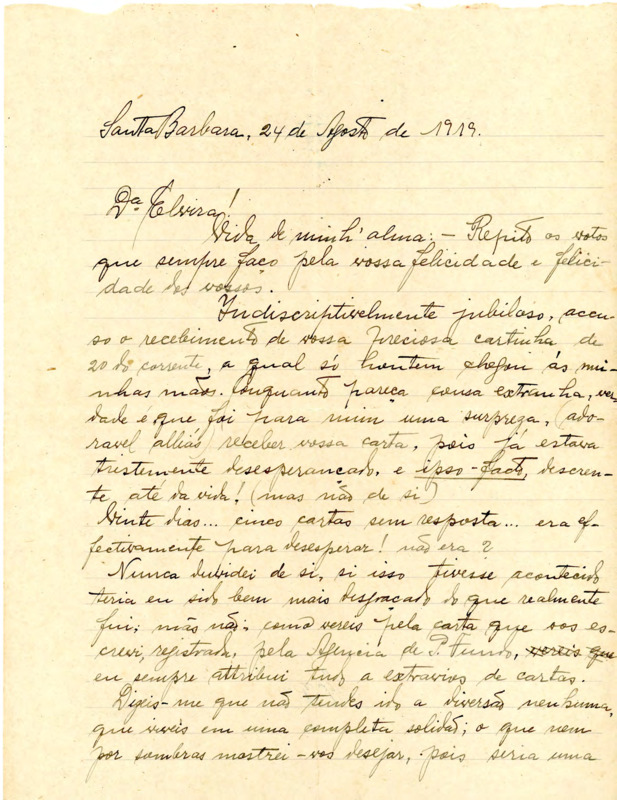 Santa Barbara, 24 de Agosto de 1919.
Da Elvira!
Vida de minh'alma: - Repito os votos
que sempre faço pela vossa felicidade e felici-
dade dos vossos.
Indiscriptivelmente jubiloso, accu-
so o recebimento de vossa preciosa cartinha de
20 do corrente, a qual só hontem chegou ás mi-
nhas mãos. Conquanto pareça cousa extranha, ver-
dade é que foi para mim uma surpreza, (ado-
ravel alliás) receber vossa carta, pois já estava
tristemente desesperançado, e ipso-facto, descren-
te até da vida! (mas não de si)
Vinte dias... cinco cartas sem resposta... era ef-
fectivamente para desesperar! não era?
Nunca duvidei de si, si isso tivesse acontecido
teria eu sido bem mais desgraçado do que realmente
fui; mas não; como vereis pela carta que vos es-
crevi, registrada, pela Agencia de P. Fundo, vereis que
eu sempre attribui tudo a extravios de cartas.
Dizeis-me que não tendes ido a diversão nenhuma,
que viveis em uma completa solidão; o que nem
por sombras mostrei-vos desejar, pois seria uma